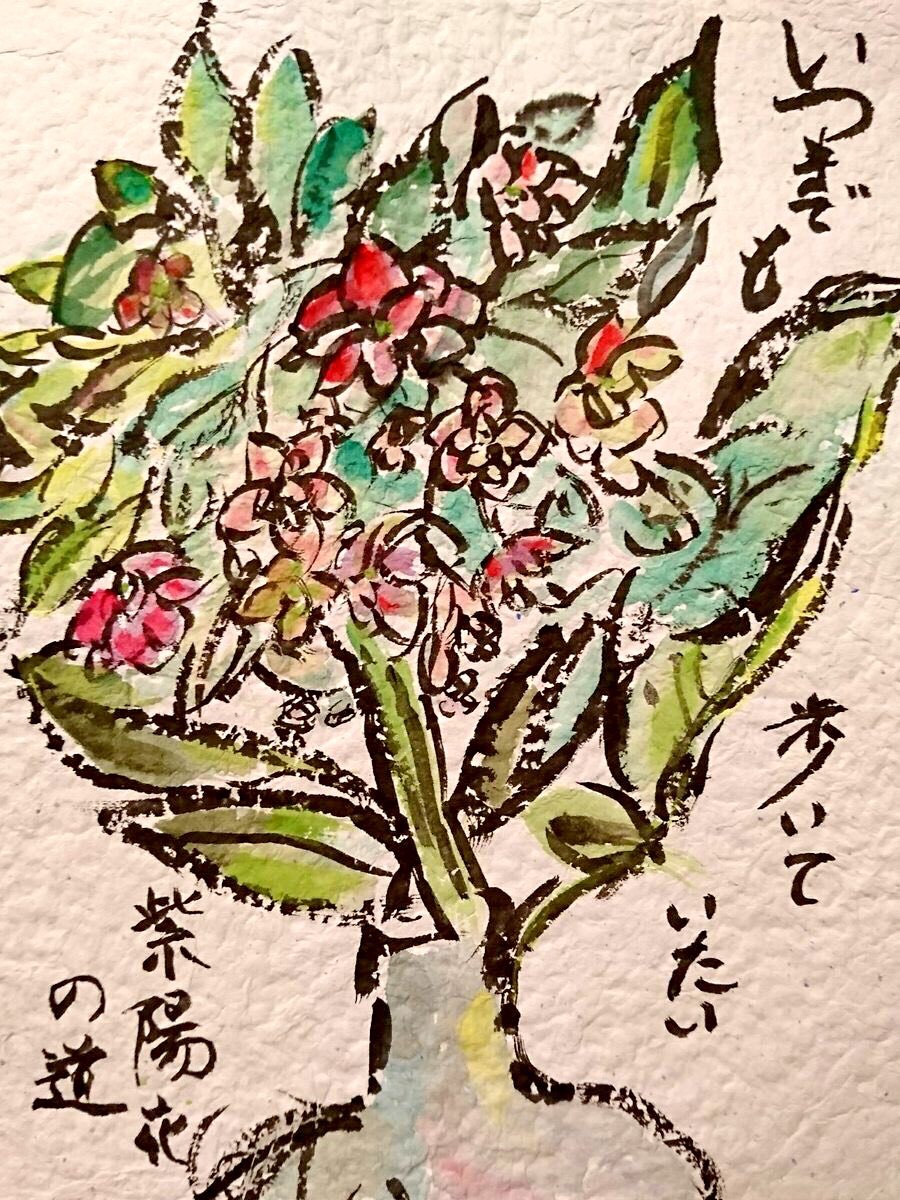 いつまでも
歩いて
いたい
紫陽花
の道